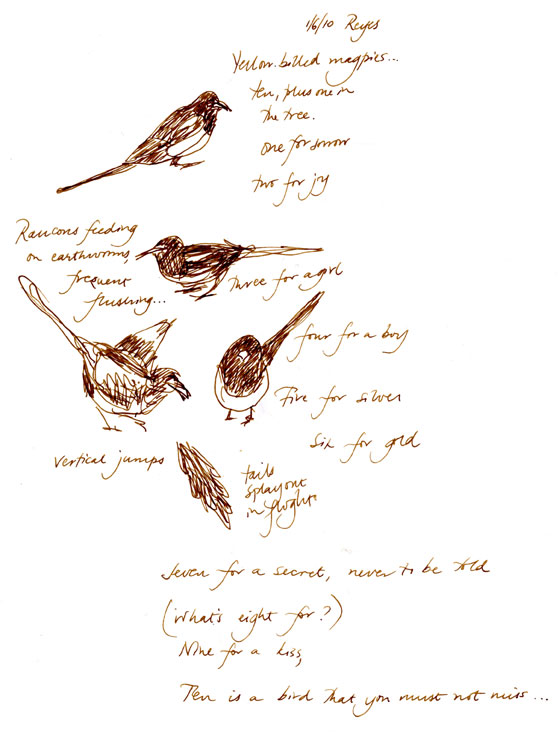 1/6/10 Reyes
Yellow-billed magpies...
ten, plus one in
the tree.
one for sorrow
two for joy
Raucous feeding
on earthworms
frequent
flushing...
three for a girl
four for a boy
Five for silver
Six for gold
vertical jumps
tails
splay out
in flight.
Seven for a secret, never to be told
(What's eight for?)
Nine for a kiss,
Ten is a bird that you must not miss...